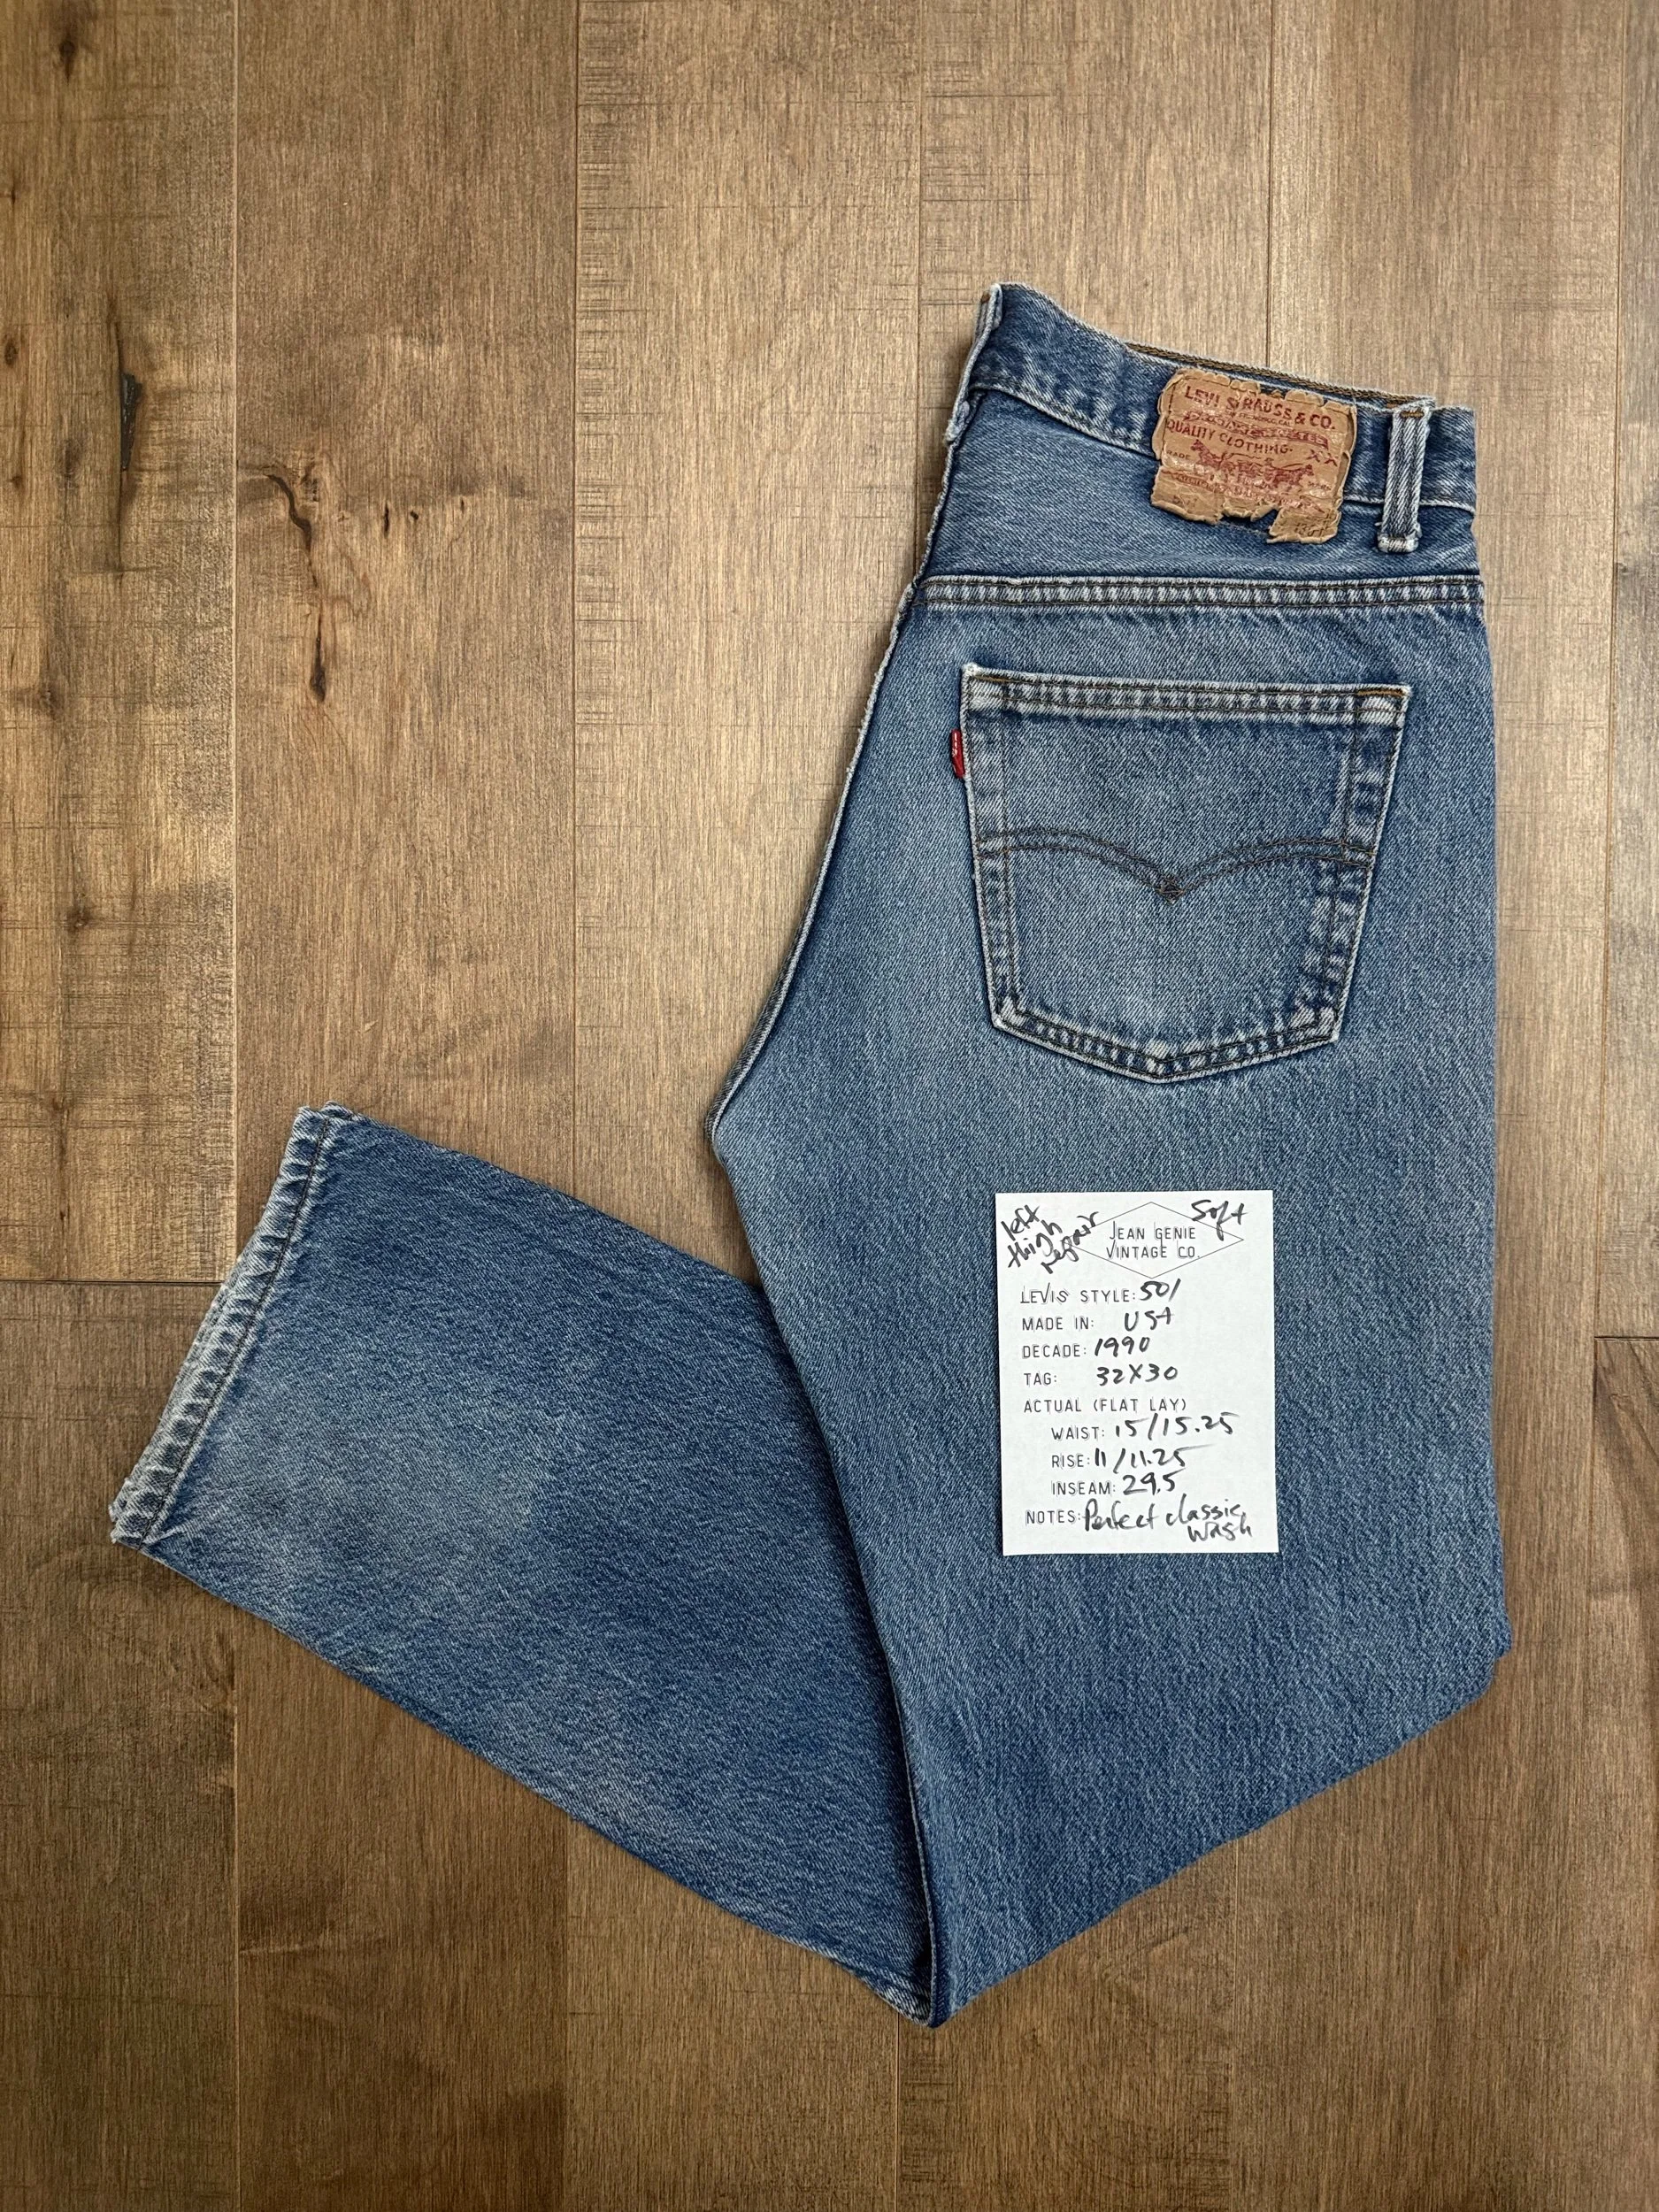 LEVI STRAUSS & CO.
QUALITY CLOTHING
XX
MADE
left
thigh
repair
Soft
JEAN GENIE
VINTAGE CO.
LEVIS STYLE: 501
MADE IN: USA
DECADE: 1990
TAG: 32X30
ACTUAL (FLAT LAY)
WAIST: 15/15.25
RISE: 11/11.25
INSEAM: 29.5
NOTES: Perfect classic
wash